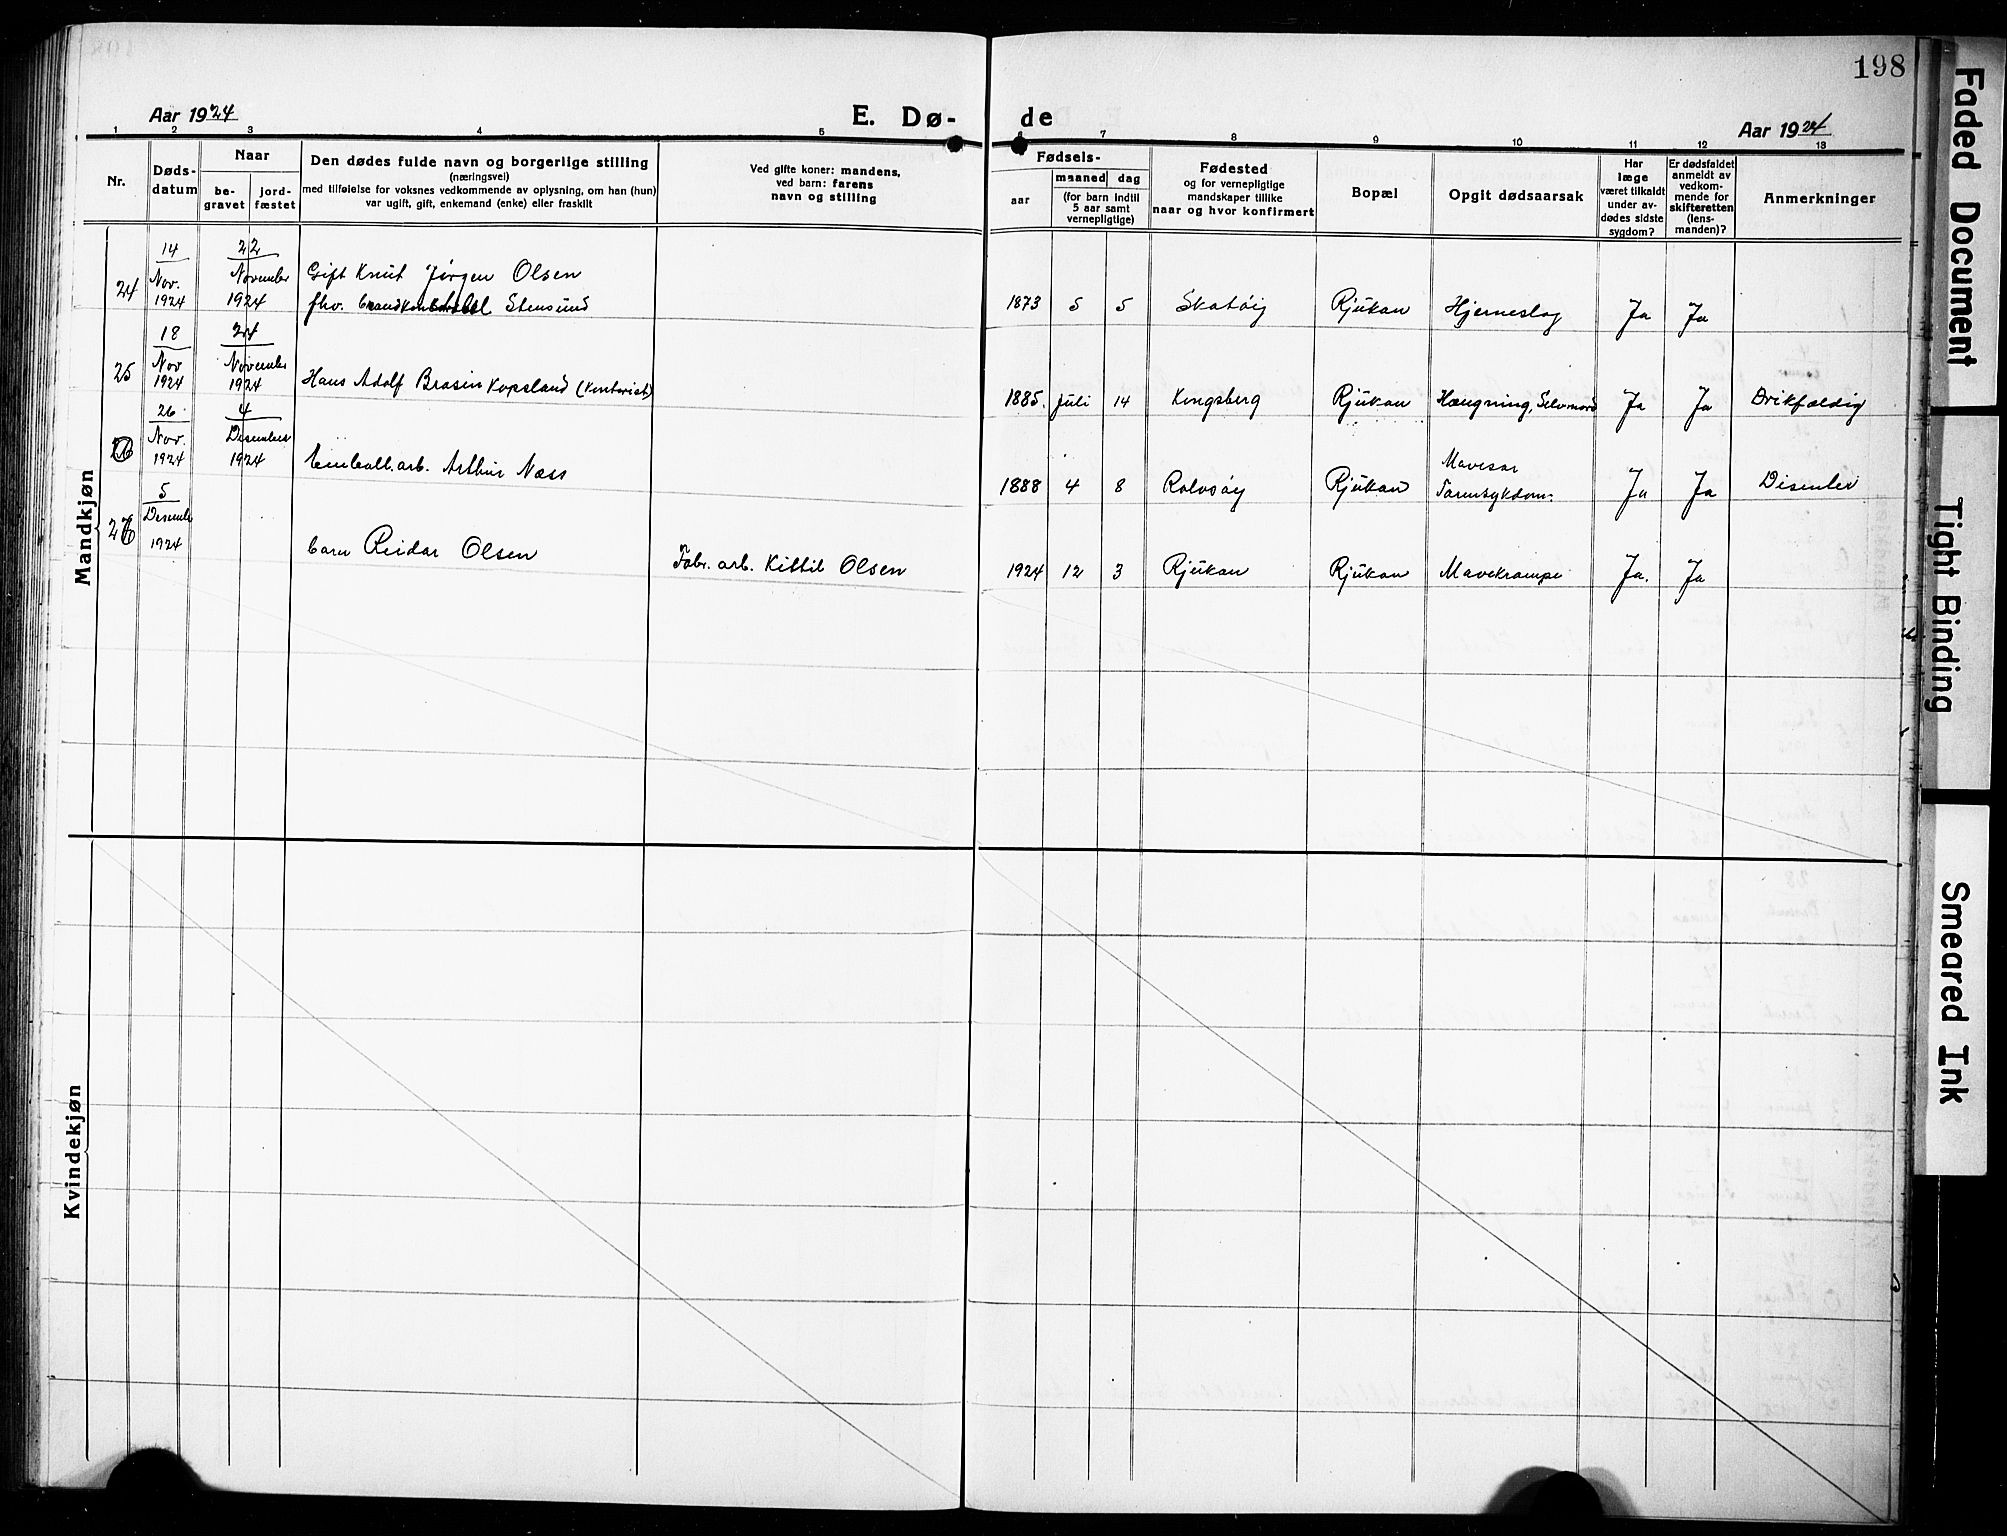 198
Aar 1924
E. Dø-
de
Aar 1924
1 2 3 4 5 6 7 8 9 10 11 12 13
Nr.
Døds-
datum
Naar
be-
gravet
jord-
fæstet
Den dødes fulde navn og borgerlige stilling
(næringsvei)
med tilføielse for voksnes vedkommende av oplysning, om han (hun)
var ugift, gift, enkemand (enke) eller fraskilt
Ved gifte koner: mandens,
ved barn: farens
navn og stilling
Fødsels-
aar
maaned
dag
(for barn indtil
5 aar samt
vernepligtige)
Fødested
og for vernepligtige
mandskaper tillike
naar og hvor konfirmert
Bopæl
Opgit dødsaarsak
Har
læge
været tilkaldt
under av-
dødes sidste
sygdom?
Er dødsfaldet
anmeldt av
vedkom-
mende for
skifteretten
(lens-
manden)?
Anmerkninger
Mandkjøn
24
14
Nov.
1924
22
November
1924
Gift Knut Jørgen Olsen
fhv. Stensund
1873 5 5 Skatøy Rjukan Hjerneslag Ja Ja
25
18
Nov
1924
24
November
1924
Hans Adolf Brosin Kopsland (Kontorist)
1885. Juli 14 Kongsberg Rjukan Hængning, Selvmord Ja Ja Drikfældig
26
26
Nov.
1924
4
Desember
1924
Emball. arb. Arthur Næss
1888 4 8 Rolvsøy Rjukan Mavesar
Tarmsykdom. Ja Ja Disenter
27
5
Desemb
1924
barn Reidar Olsen
Fabr. arb. Kittil Olsen
1924 12 3 Rjukan Rjukan Mavekrampe Ja. Ja
Kvindekjøn
Faded Document
Tight Binding
Smeared Ink